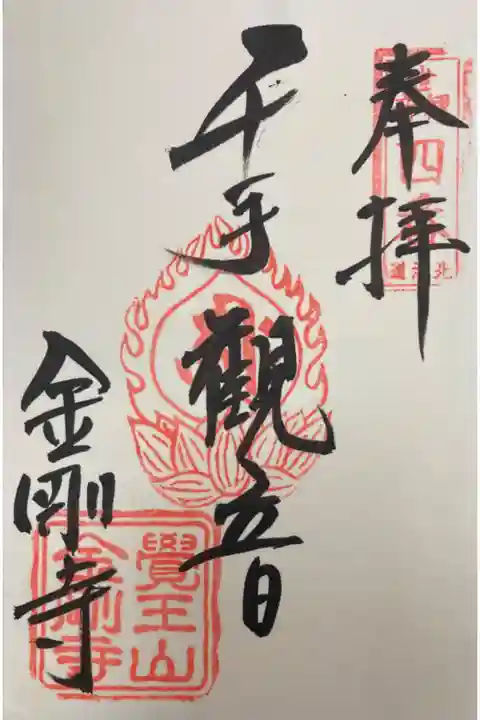 奉拝
第四番
北海道
千手觀音
金剛寺
覺王山
金剛寺